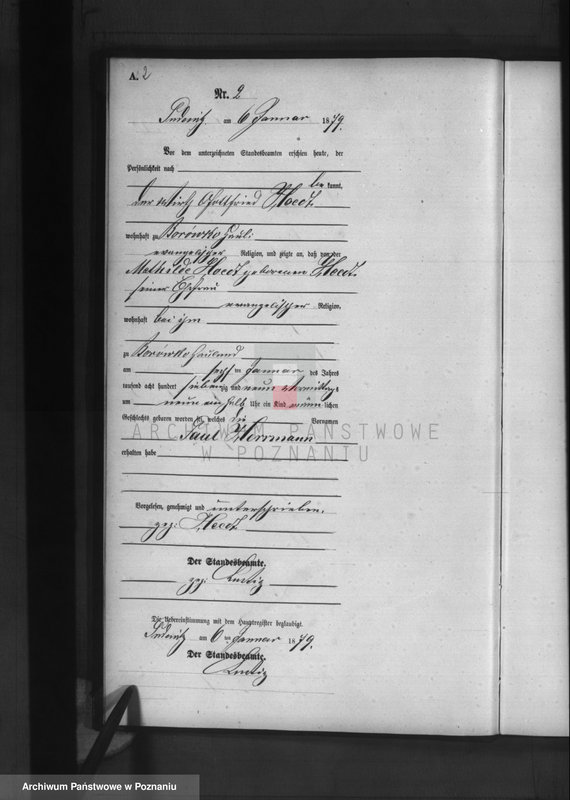 A. 2
Nr. 2
am 6 Januar 1879.
Vor dem unterzeichneten Standesbeamten erschien heute, der
Persönlichkeit nach
be kannt,
der Wirth Gottfried
wohnhaft zu Borówko Hauli
evangelischer Religion, und zeigte an, daß von der
Mathilde geborenen
seiner Ehefrau
evangelischer Religion,
wohnhaft bei ihm
zu Borówko Hauland
am sechs ten Januar des Jahres
tausend acht hundert siebenzig und neun Vormittags
um neun ein halb Uhr ein Kind männlichen
Geschlechts geboren worden sei, welches die Vornamen
Paul Herrmann
erhalten habe
Vorgelesen, genehmigt und unterschrieben.
gez:
Der Standesbeamte.
gez:
Die Uebereinstimmung mit dem Hauptregister beglaubigt.
am 6 ten Januar 1879.
Der Standesbeamte.
ARCHIWUM PAŃSTWOWE
W POZNANIU
Archiwum Państwowe w Poznaniu